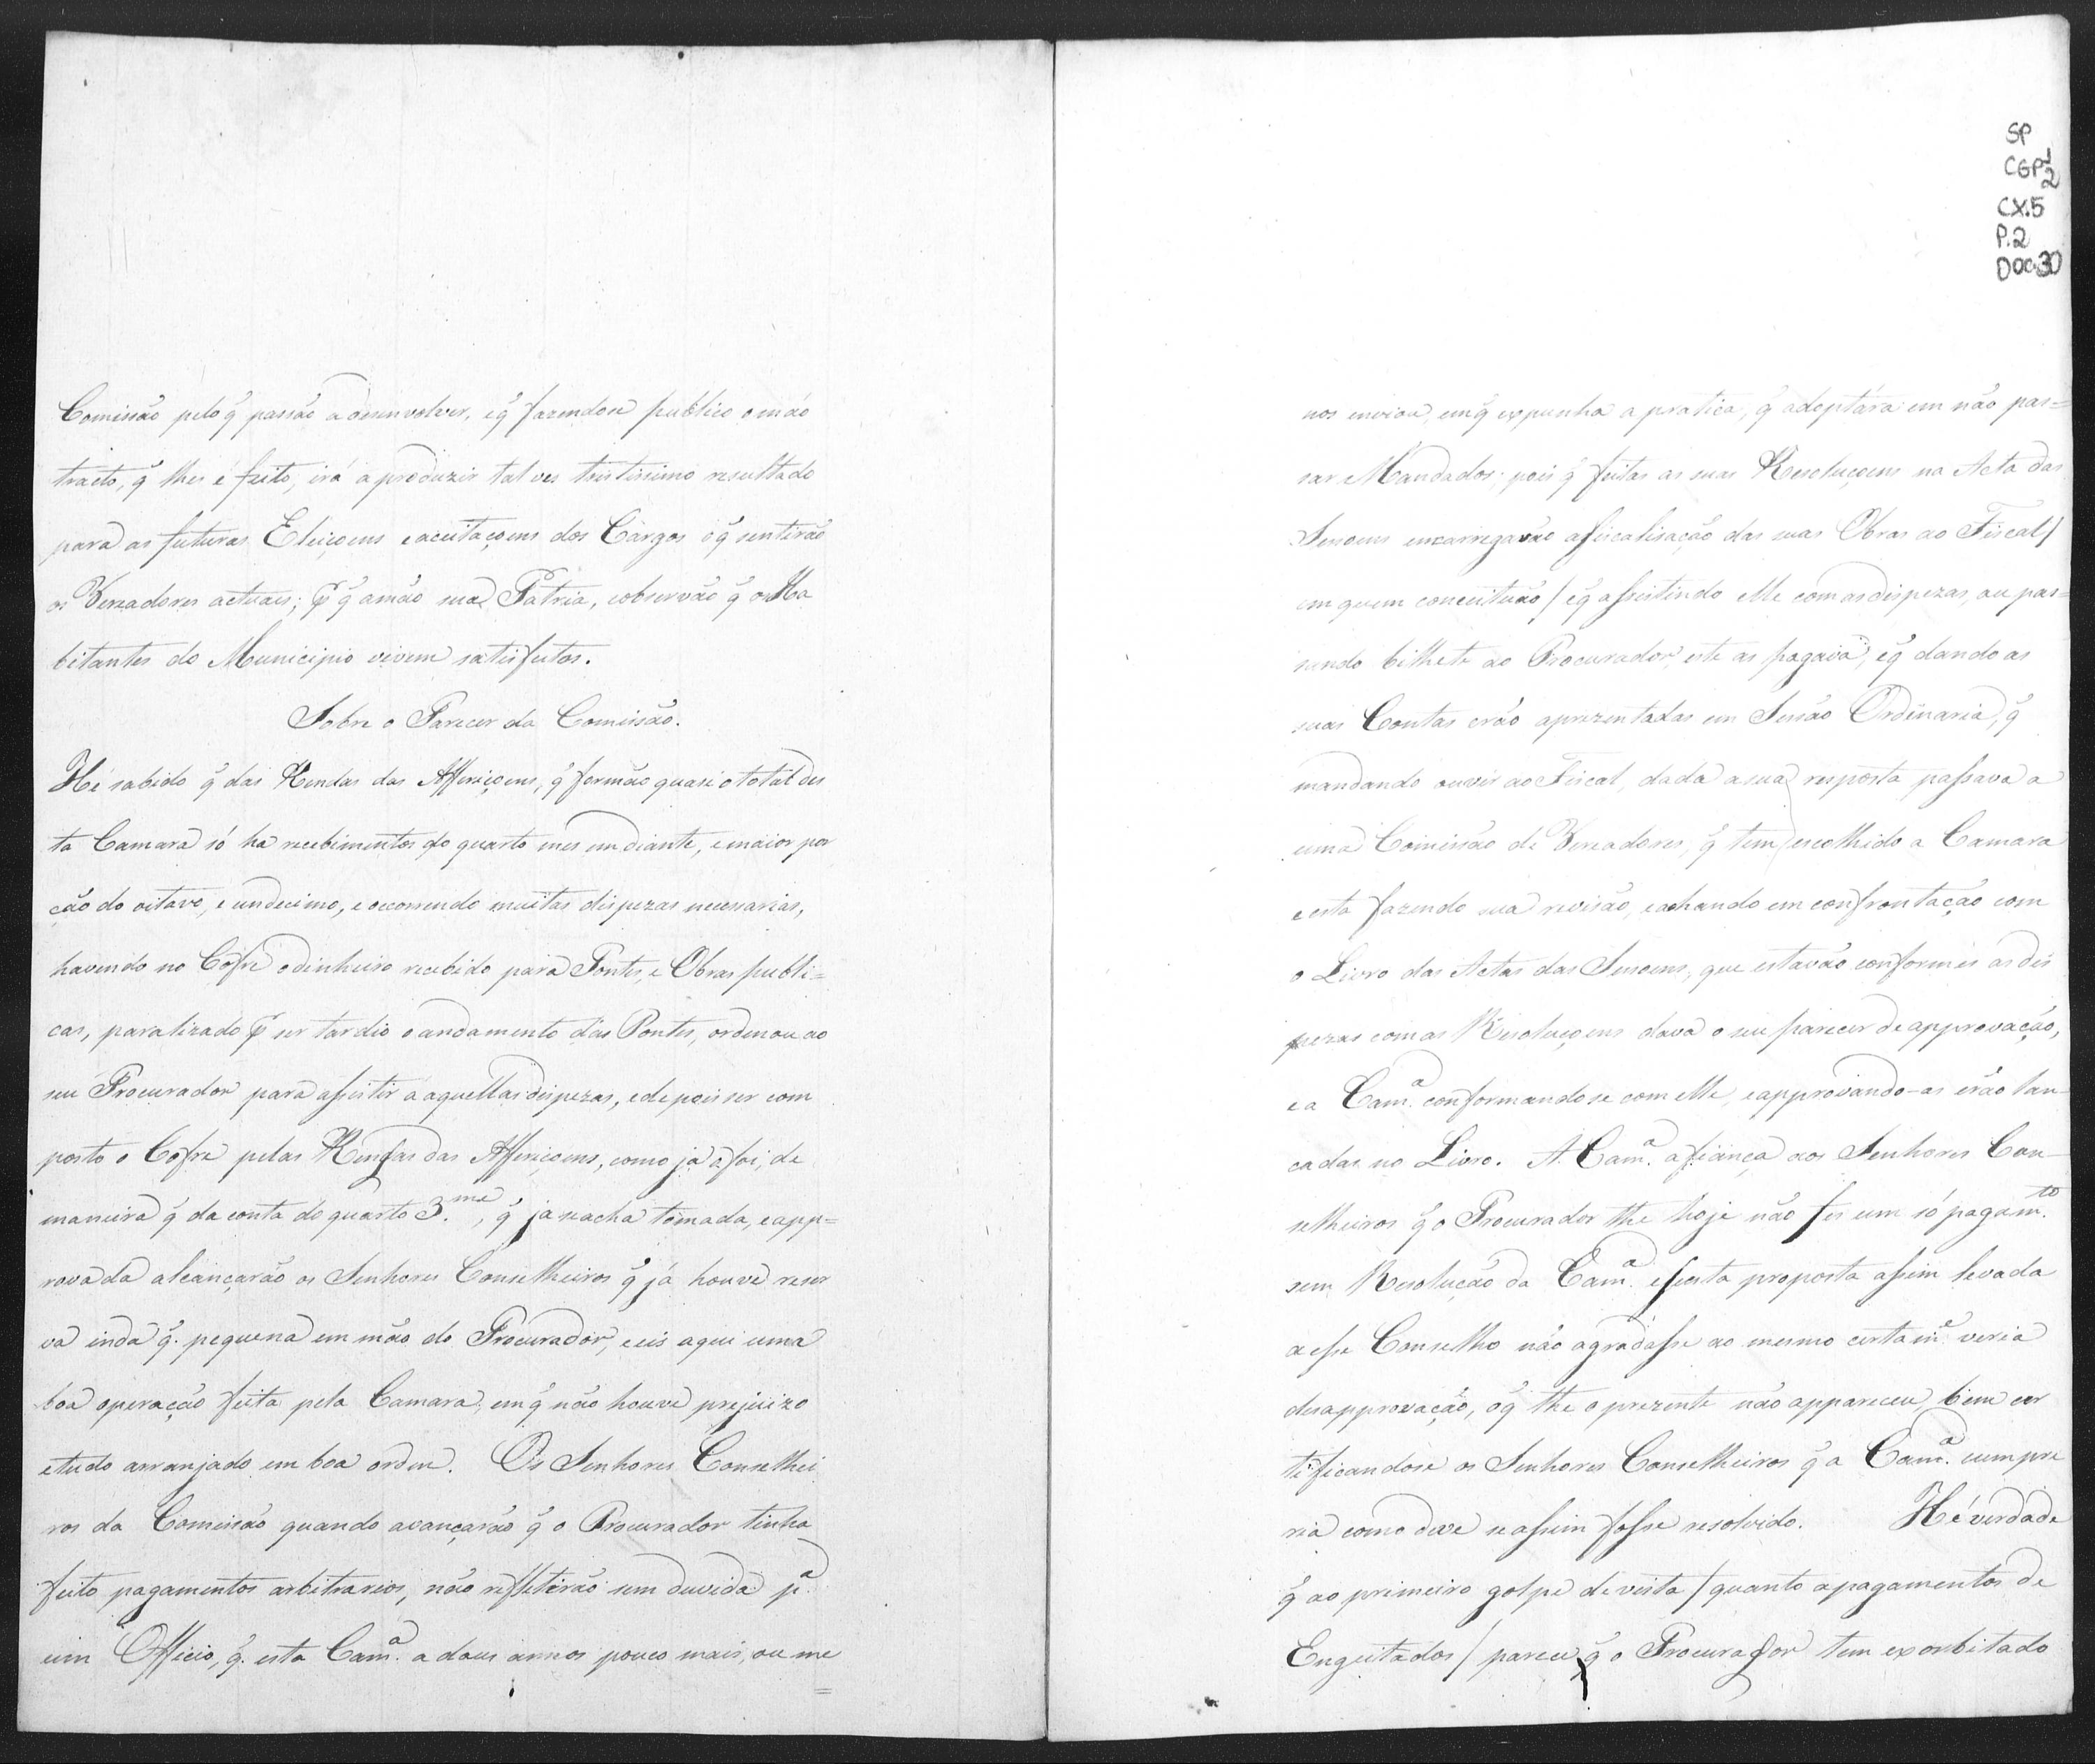 Comissão pelo q̃ passão a desenvolver, e q̃ fazendose publico o máo
tracto, q̃ lhes é feito, irá a produzir talves tristissimo resultado
para as futuras Eleiçoens e aceitaçoens dos Cargos o q̃ sentirão
os Vereadores actuais; p̃ q̃ amão sua Patria, e observão q̃ os Ha
bitantes do Municipio vivem satisfeitos.
Sobre o Parecer da Comissão.
Hé sabido q̃ das Rendas das Affiriçoens, q̃ formão quasi o total des
ta Camara só ha recebimentos do quarto mes em diante, e maior por
ção do oitavo, e undecimo, e occorrendo muitas dispezas necessarias,
havendo no Cofre o dinheiro recebido para Pontes, e Obras publi=
cas, paralizado p̃ ser tardio o andamento das Pontes, ordenou ao
seu Procurador para assistir a aquellas dispezas, e depois ser com
posto o Cofre pelas Rendas das Affiriçoens, como já o foi, de
maneira q̃ da conta do quarto 3.me, q̃ ja se acha tomada, e app=
rovada alcançarão os Senhores Conselheiros q̃ já houve reser
va inda q̃. pequena em mão do Procurador, e eis aqui uma
boa operação feita pela Camara, em q̃ não houve prejuizo
e tudo arranjado em boa ordem. Os Senhores Conselhei
ros da Comissão quando avançarão q̃ o Procurador tinha
feito pagamentos arbitrarios, não refletirão sem duvida p.a
um Officio, q̃. esta Cam.a a dous annos pouco mais, ou me
=
SP
CGP1
2
CX.5
P.2
DOC.30
nos enviou, em q̃ expunha a pratica, q̃ adoptára em não pas=
sar Mandados; pois q̃ feitas as suas Resoluçoens na Acta das
Sessoens encarregavão a fiscalisação das suas Obras ao Fiscal/
em quem conceituão/ e q̃ assistindo elle com as dispezas, ou pas=
sando bilhete ao Procurador, este as pagava, e q̃ dando as
suas Contas erão aprezentadas em Sessão Ordinaria, q̃
mandando ouvir ao Fiscal, dada a sua resposta passava a
uma Comissão de Vereadores, q̃ tem escolhido a Camara
e esta fazendo sua revisão, e achando em confrontação com
o Livro das Actas das Sessoens, que estavão conformes as dis
pezas com as Resoluçoens dava o seu parecer de approvação,
e a Cam.a conformandose com elle, e approvando-as erão lan-
cadas no Livro. A Cam.a afiança aos Senhores Con-
selheiros q̃ o Procurador the hoje não fes um só pagam.to
sem Resolução da Cam.a e se esta proposta assim levada
a esse Conselho não agradasse ao mesmo certam.e veria
desapprovação, o q̃ the o prezente não appareceu, bem cer
tificandose os Senhores Conselheiros q̃ a Cam.a cumpre
ria como deve se assim fosse resolvido. Hé verdade
q̃ ao primeiro golpe de vista / quanto a pagamentos de
Engeitados / pareceu q̃ o Procurador tem exorbitado